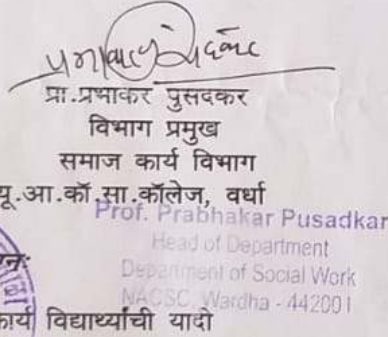 प्रा.प्रभाकर पुसदकर
विभाग प्रमुख
समाज कार्य विभाग
यू.आ.कॉ.सा.कॉलेज, वर्धा
Prof. Prabhakar Pusadkar
Head of Department
Department of Social Work
NACSC, Wardha - 442001
कार्य विद्यार्थ्यांची यादी